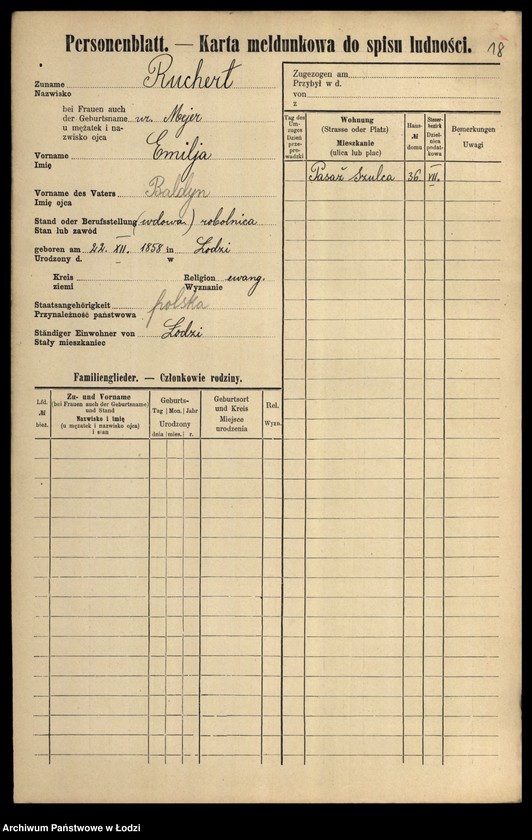 Personenblatt. — Karta meldunkowa do spisu ludności.
18
Zuname Ruchert
Nazwisko
bei Frauen auch
der Geburtsname ur. Mejer
u mężatek i na-
zwisko ojca
Vorname Emilja
Imię
Vorname des Vaters Baldyn
Imię ojca
Stand oder Berufsstellung (wdowa) robotnica
Stan lub zawód
geboren am 22. XII. 1858 in Łodzi
Urodzony d. w
Kreis Religion ewang.
ziemi Wyznanie
Staatsangehörigkeit polska
Przynależność państwowa
Ständiger Einwohner von Łodzi
Stały mieszkaniec
Zugezogen am
Przybył w d.
von
z
Tag des Um-zuges Dzień prze-prowadzki
Wohnung
(Strasse oder Platz)
Mieszkanie
(ulica lub plac)
Haus-
№
domu
Steuer-bezirk Dzielnica podatkowa
Bemerkungen
Uwagi
Pasaż Szulca 36. VII.
Familienglieder. — Członkowie rodziny.
Lfd.
№
bież.
Zu- und Vorname
(bei Frauen auch der Geburtsname)
und Stand
Nazwisko i imię
(u mężatek i nazwisko ojca)
i stan
Geburts-
Tag Mon. Jahr
Urodzony
dnia mies. r.
Geburtsort
und Kreis
Miejsce
urodzenia
Rel.
Wyzn.
Archiwum Państwowe w Łodzi